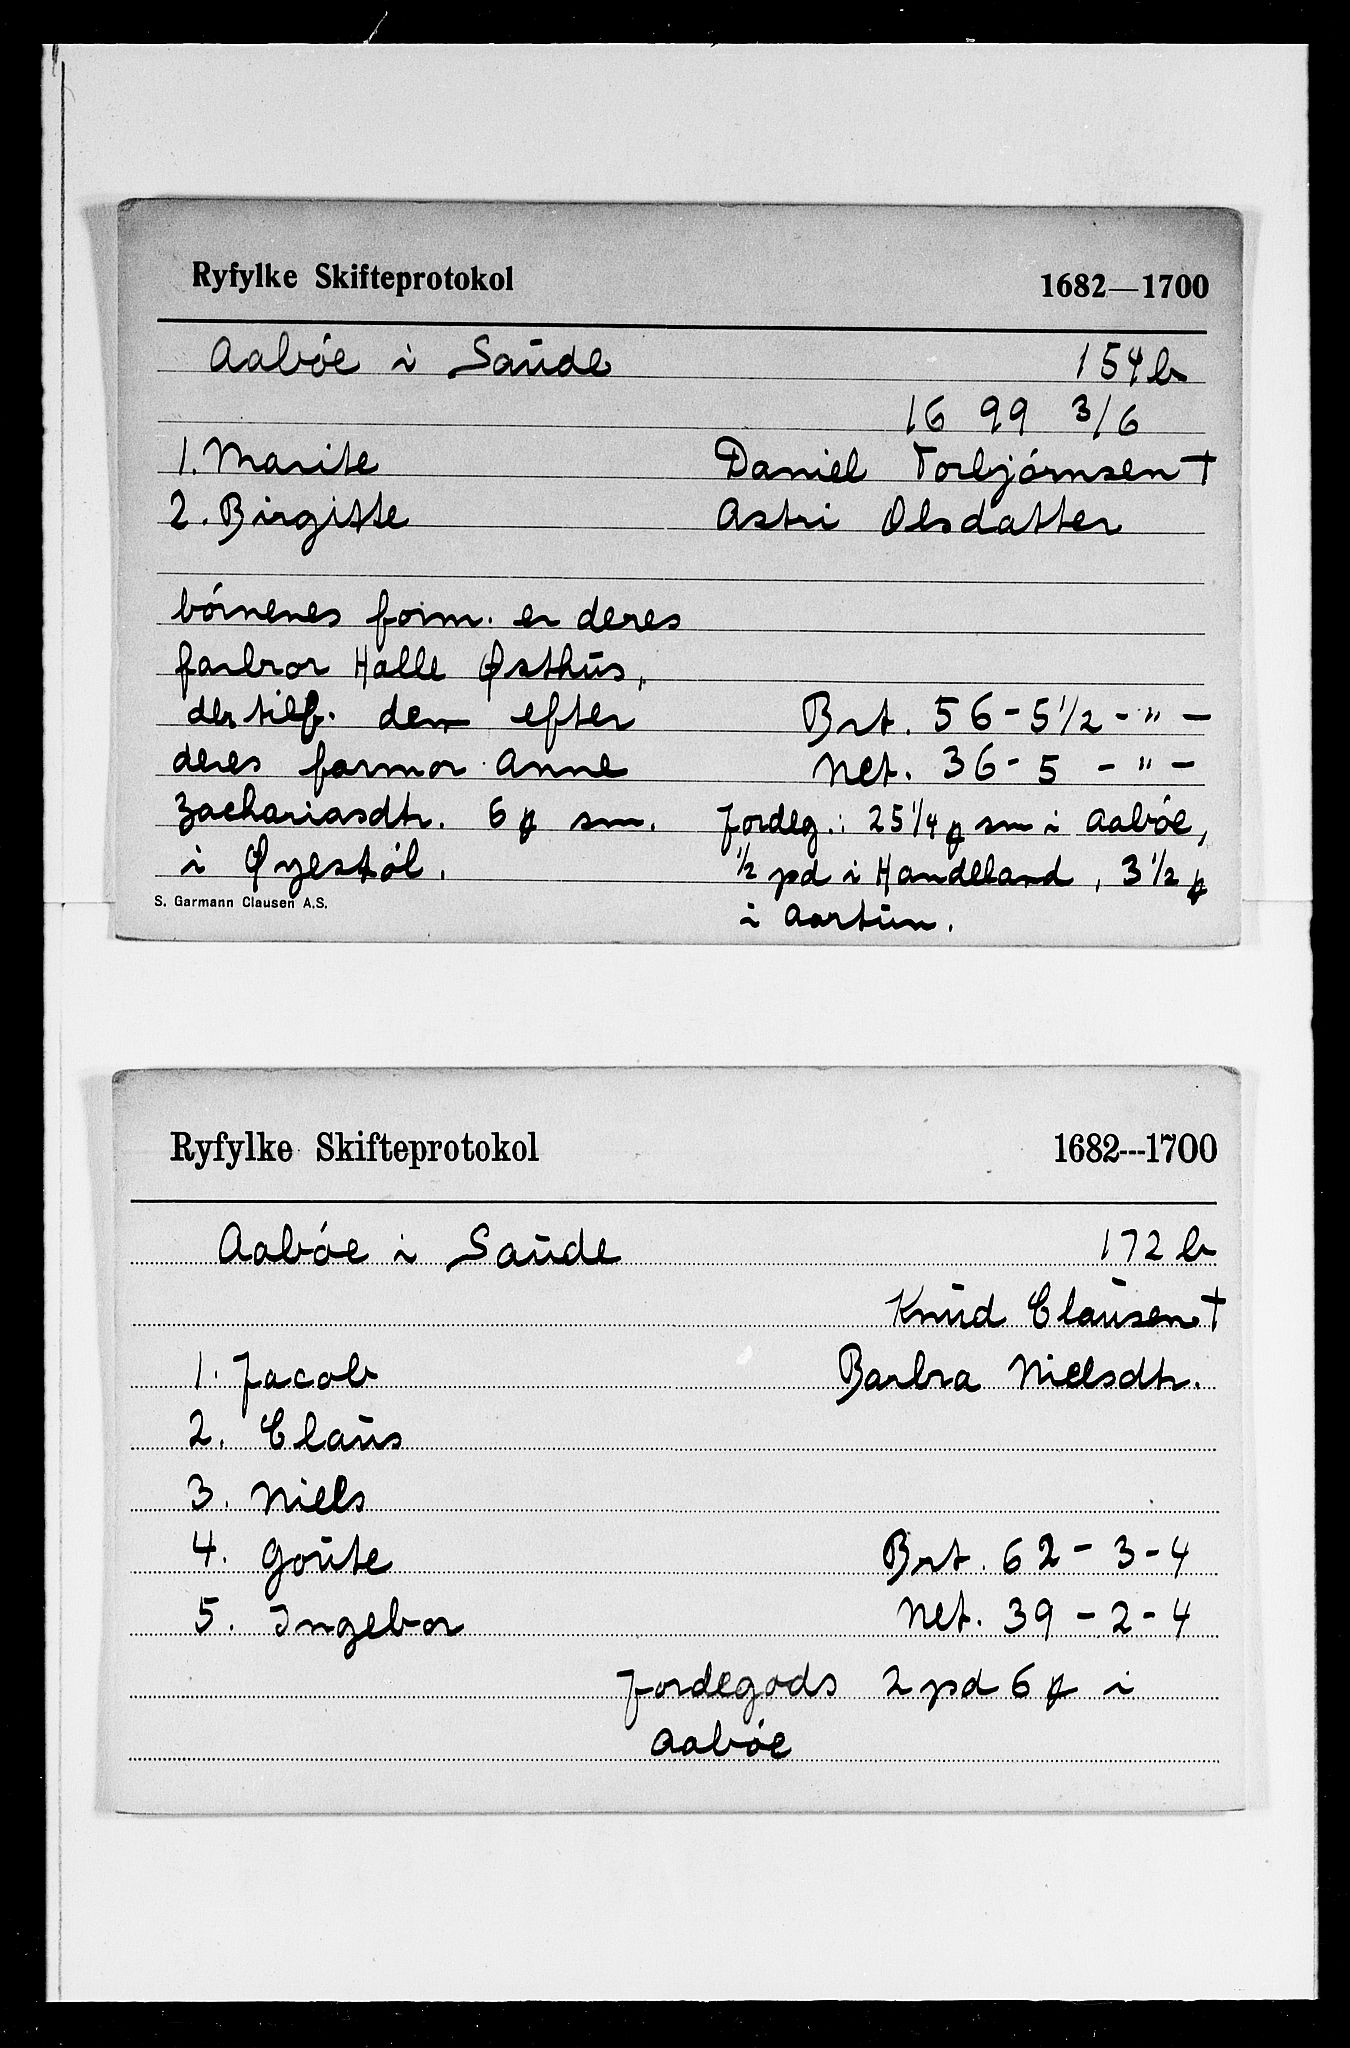 Ryfylke Skifteprotokol 1682—1700
Aabøe i Saude 154b
1699 3/6
1. Marite Daniel Torbjørnsen †
2. Birgitte Astri Olsdatter
børnenes form. er deres
farbror Halle Østhus,
der tilf. dem efter Brt. 56-5 1/2 - " -
deres farmor Anne Net. 36-5 - " -
Zachariasdtr. 6 ℔ sm. Jordeg.: 25 1/4 ℔ sm i Aabøe,
i Øyestøl. 1/2 pd i Handeland, 3 1/2 ℔
S. Garmann Clausen A.S.
i Aartun.
Ryfylke Skifteprotokol 1682---1700
Aabøe i Saude 172b
Knud Clausen †
1. Jacob Barbra Nielsdtr.
2. Claus
3. Niels
4. Goute Brt. 62-3-4
5. Ingebor Net. 39-2-4
Jordegods 2 pd 6 ℔ i
Aabøe